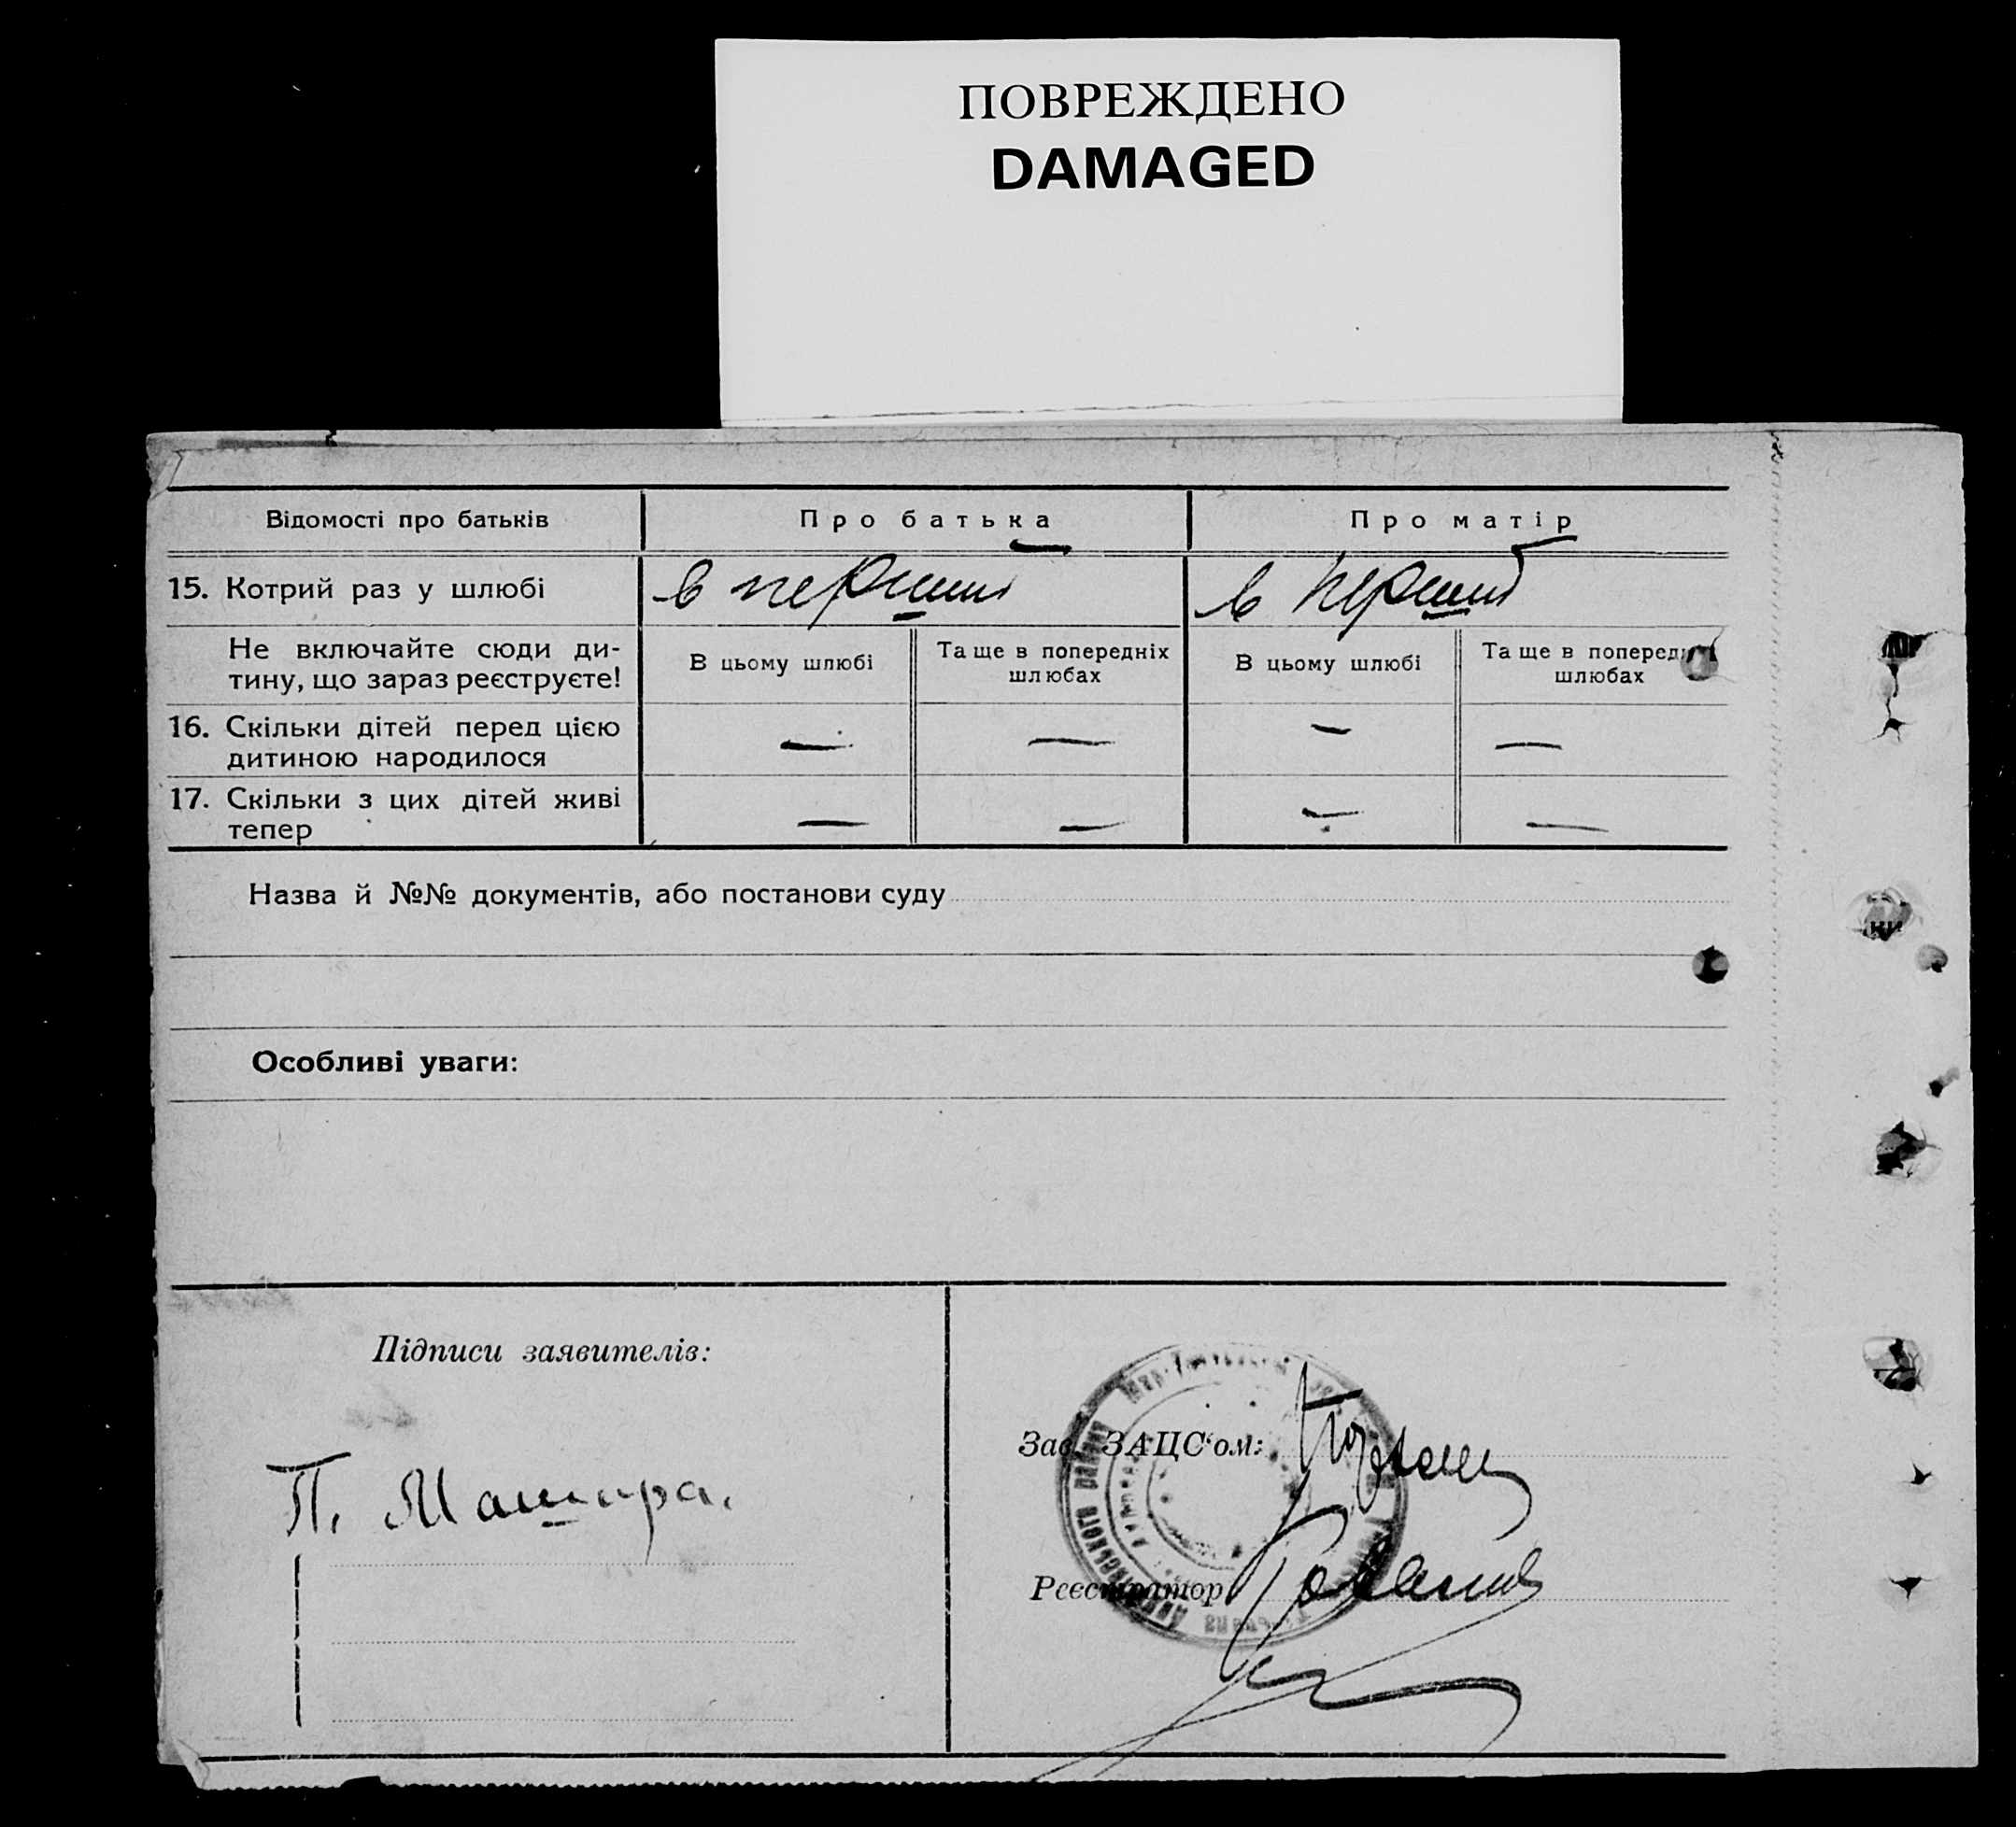 ПОВРЕЖДЕНО
DAMAGED
Відомості про батьків
Про батька
Про матір
15. Котрий раз у шлюбі
в перший
в перший
Не включайте сюди ди-
тину, що зараз реєструєте!
В цьому шлюбі
Та ще в попередніх
шлюбах
В цьому шлюбі
Та ще в
шлюбах
16. Скільки дітей перед цією
дитиною народилося
— — — —
17. Скільки з цих дітей живі
тепер
— — — —
Назва й №№ документів, або постанови суду
Особливі уваги:
Підписи заявителів:
П. Машира.
Зав. ЗАЦС'ом:
Реєстратор
району